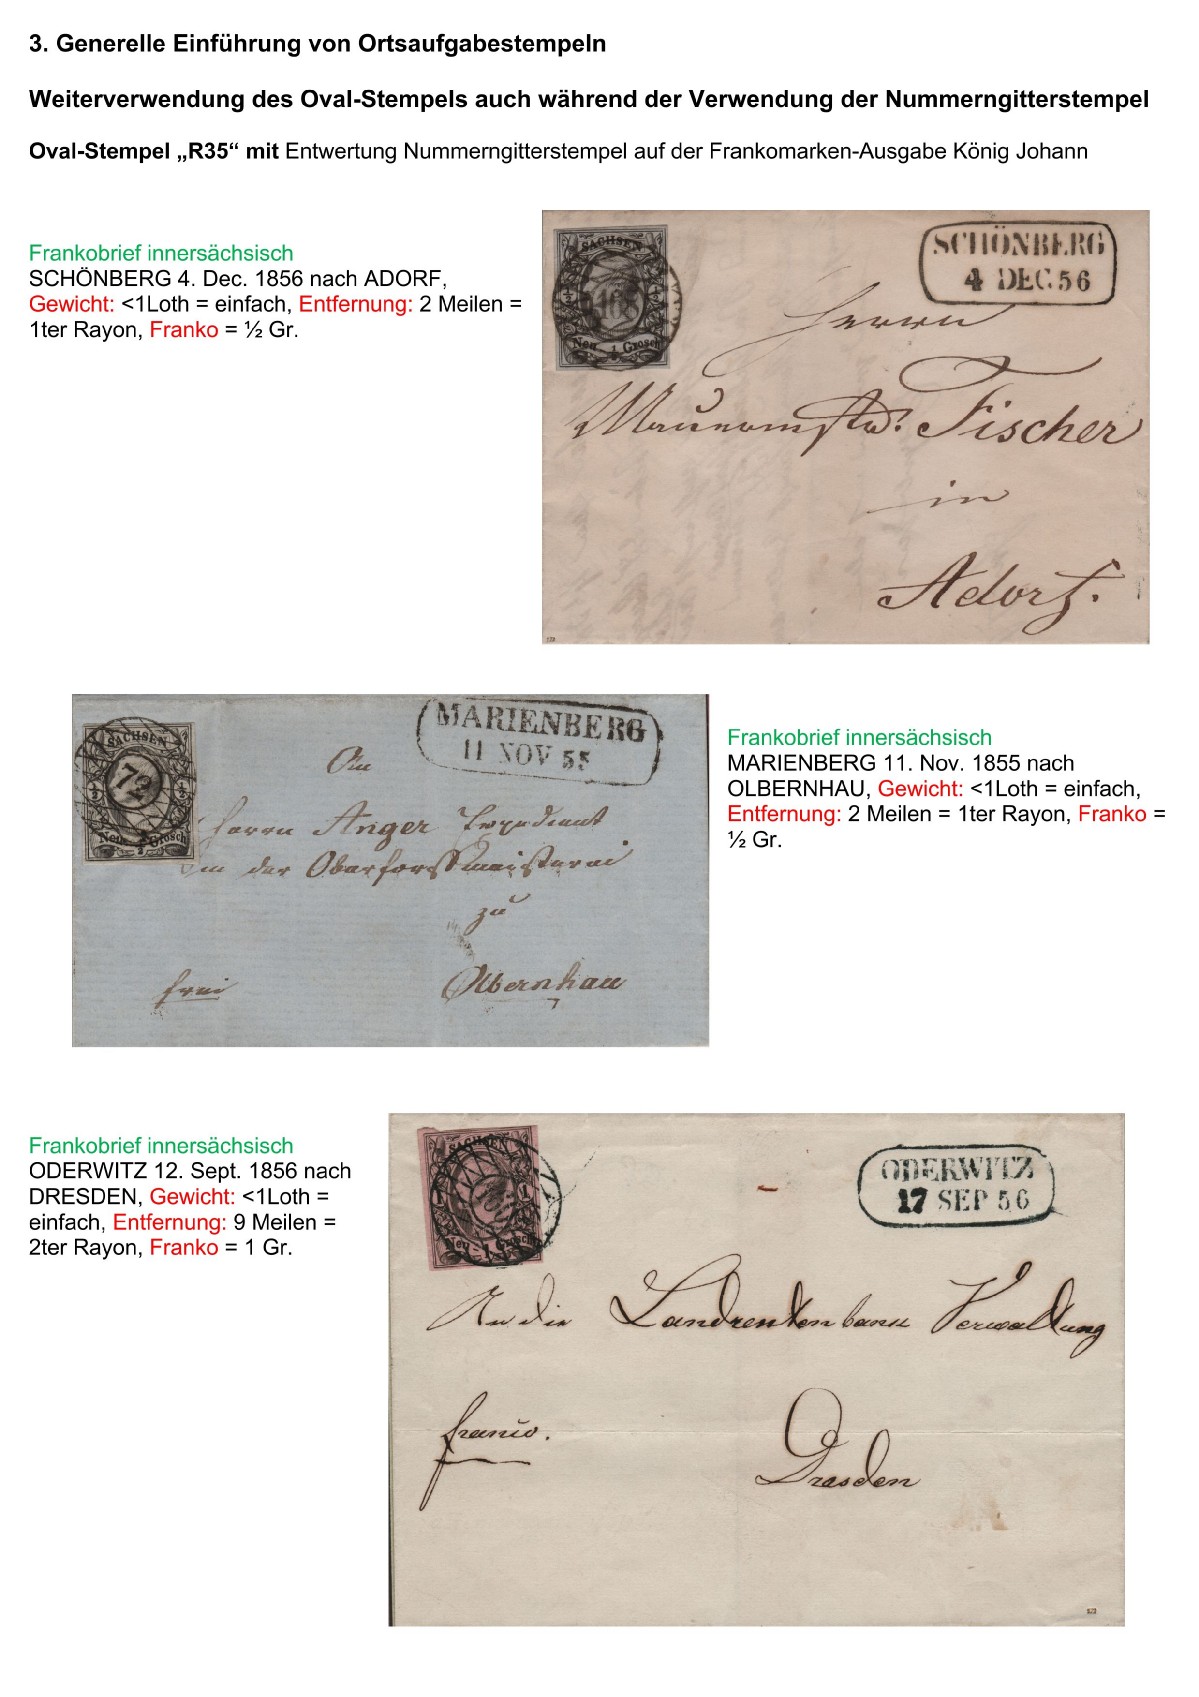 3. Generelle Einführung von Ortsaufgabestempeln
Weiterverwendung des Oval-Stempels auch während der Verwendung der Nummerngitterstempel
Oval-Stempel „R35“ mit Entwertung Nummerngitterstempel auf der Frankomarken-Ausgabe König Johann
Frankobrief innersächsisch
SCHÖNBERG 4. Dec. 1856 nach ADORF,
Gewicht: <1Loth = einfach, Entfernung: 2 Meilen =
1ter Rayon, Franko = ½ Gr.
SACHSEN
Neu ½ Grosch
SCHÖNBERG
4 DEC. 56
Herrn
Fischer
in
Adorf.
SACHSEN
72
Neu ½ Grosch
MARIENBERG
11 NOV 55
An
Herrn Anger Expedient
in der Oberforstmeisterei
zu
frei
Olbernhau
Frankobrief innersächsisch
MARIENBERG 11. Nov. 1855 nach
OLBERNHAU, Gewicht: <1Loth = einfach,
Entfernung: 2 Meilen = 1ter Rayon, Franko =
½ Gr.
Frankobrief innersächsisch
ODERWITZ 12. Sept. 1856 nach
DRESDEN, Gewicht: <1Loth =
einfach, Entfernung: 9 Meilen =
2ter Rayon, Franko = 1 Gr.
SACHSEN
Neu - 1 Grosch
ODERWITZ
17 SEP 56
An die Landrentenbank Verwaltung
franco.
Dresden